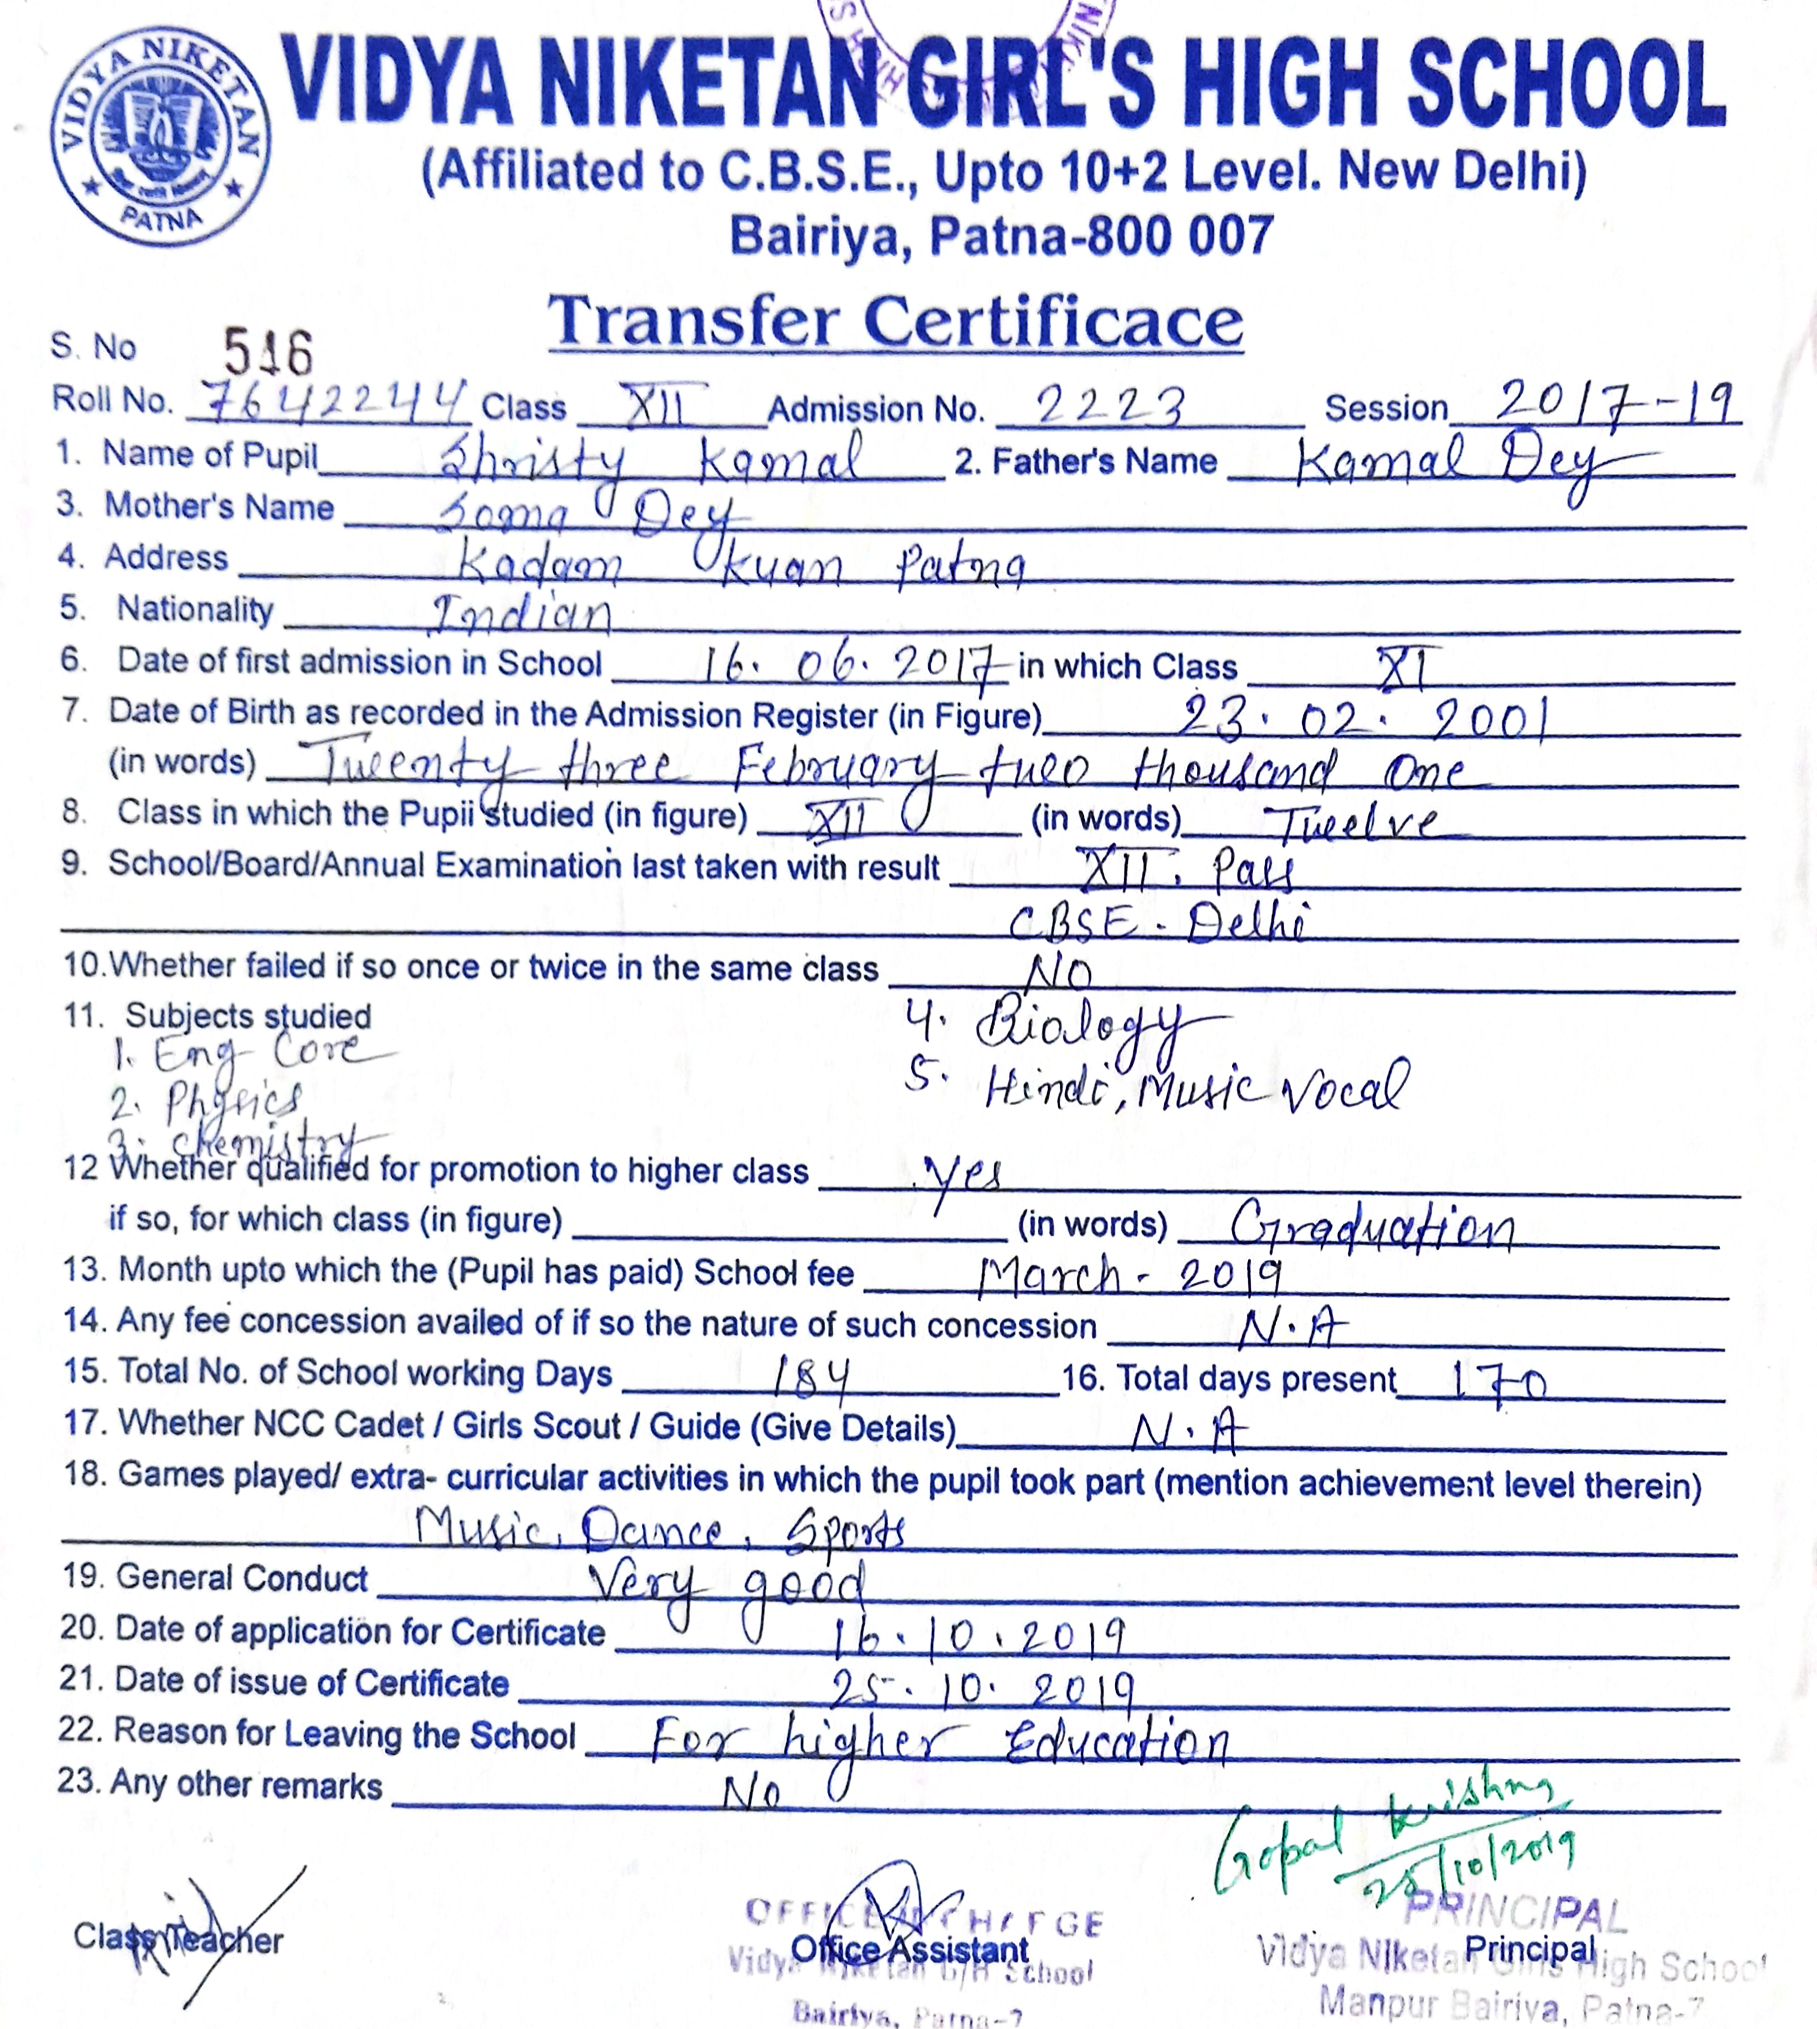 VIDYA NIKETAN
PATNA
VIDYA NIKETAN GIRL'S HIGH SCHOOL
(Affiliated to C.B.S.E., Upto 10+2 Level. New Delhi)
Bairiya, Patna-800 007
Transfer Certificace
S. No 516
Roll No. 76422244 Class XII Admission No. 2223 Session 2017-19
1. Name of Pupil Shristy Kamal 2. Father's Name Kamal Dey
3. Mother's Name Soma Dey
4. Address Kadam Kuan Patna
5. Nationality Indian
6. Date of first admission in School 16. 06. 2017 in which Class XI
7. Date of Birth as recorded in the Admission Register (in Figure) 23. 02. 2001
(in words) Tweenty three February two thousand One
8. Class in which the Pupii studied (in figure) XII (in words) Tweelve
9. School/Board/Annual Examination last taken with result XII. Pass
CBSE - Delhi
10.Whether failed if so once or twice in the same class NO
11. Subjects studied
1. Eng Core
2. Physics
3. Chemistry
4. Biology
5. Hindi, Music Vocal
12 Whether qualified for promotion to higher class Yes
if so, for which class (in figure) (in words) Graduation
13. Month upto which the (Pupil has paid) School fee March - 2019
14. Any fee concession availed of if so the nature of such concession N.A
15. Total No. of School working Days 184 16. Total days present 170
17. Whether NCC Cadet / Girls Scout / Guide (Give Details) N.A
18. Games played/ extra- curricular activities in which the pupil took part (mention achievement level therein)
Music, Dance, Sports
19. General Conduct Very good
20. Date of application for Certificate 16.10.2019
21. Date of issue of Certificate 25.10.2019
22. Reason for Leaving the School For higher Education
23. Any other remarks No
Gopal Krishna
25/10/2019
Class Teacher
Office Assistant
Vidya Niketan G/H School
Bairiya, Patna-7
PRINCIPAL
Principal
Vidya Niketan Girls High School
Manpur Bairiya, Patna-7